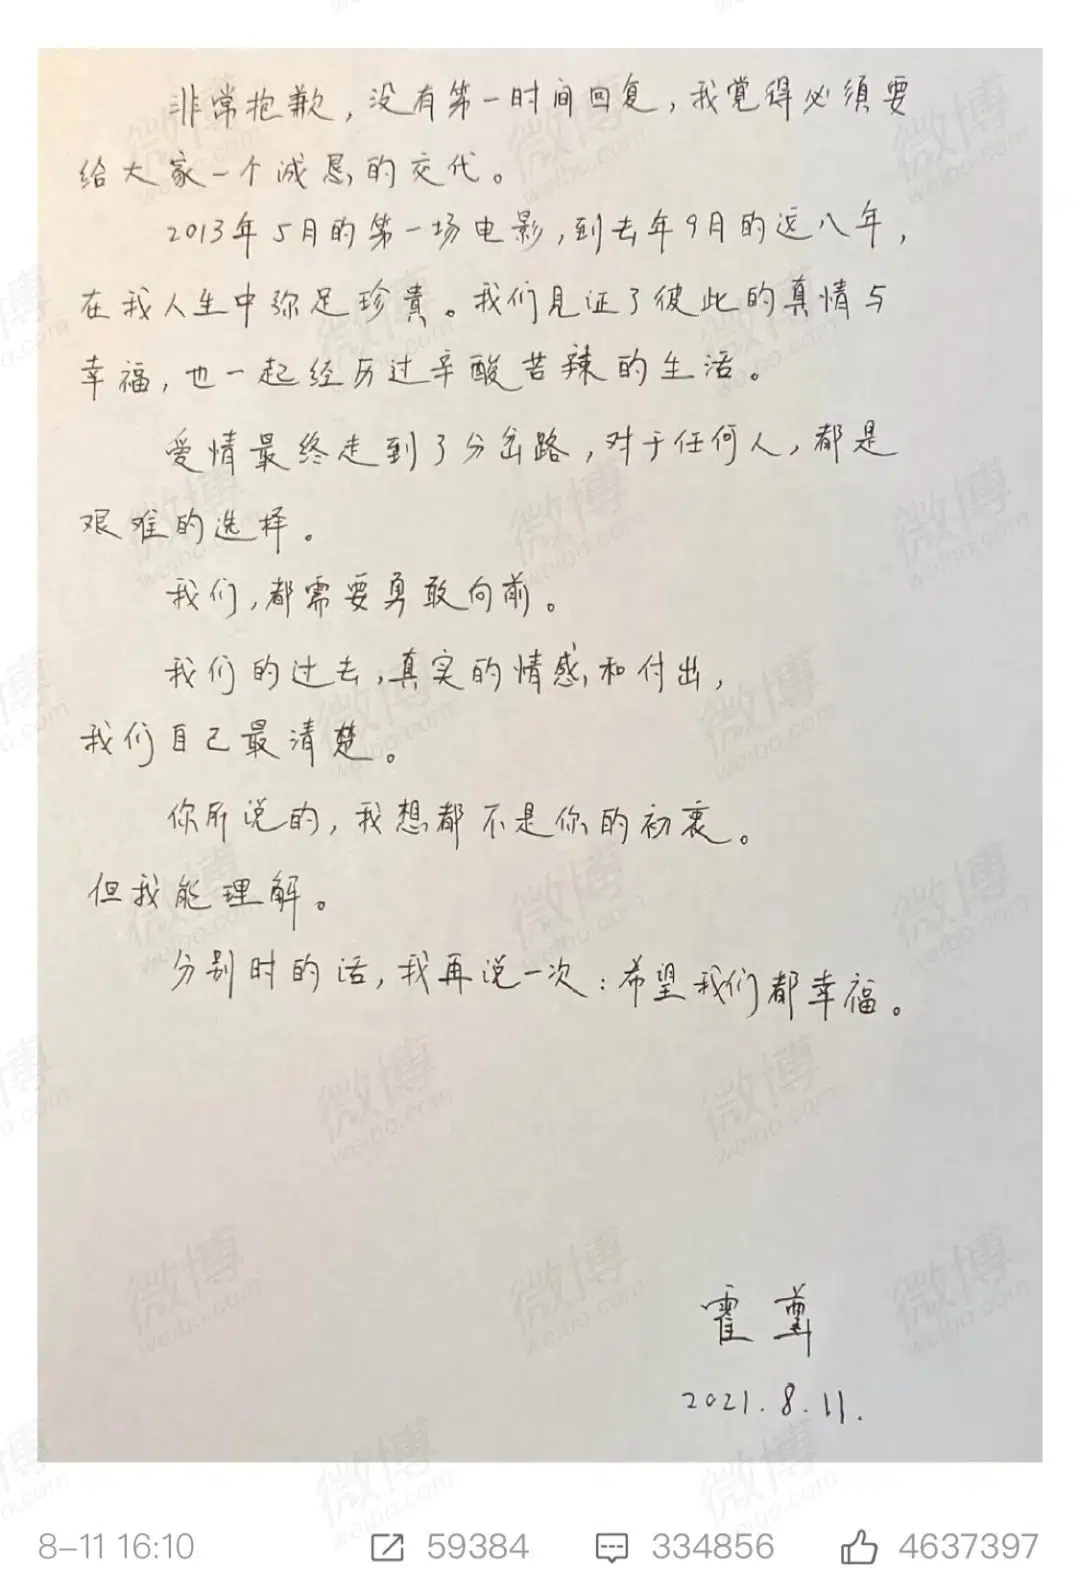 非常抱歉，没有第一时间回复，我觉得必须要
给大家一个诚恳的交代。
2013年5月的第一场电影，到去年9月的这八年，
在我人生中弥足珍贵。我们见证了彼此的真情与
幸福，也一起经历过辛酸苦辣的生活。
爱情最终走到了分岔路，对于任何人，都是
艰难的选择。
我们，都需要勇敢向前。
我们的过去，真实的情感和付出，
我们自己最清楚。
你所说的，我想都不是你的初衷。
但我能理解。
分别时的话，我再说一次：希望我们都幸福。
霍尊
2021.8.11.
8-11 16:10 59384 334856 4637397
微博
weibo.com